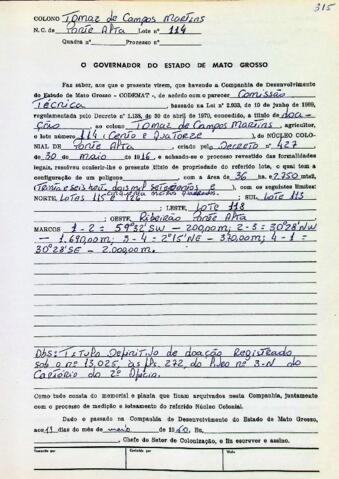 315
COLONO Tomaz de Campos Martins
N. C. de Ponte Alta Lote nº 114
Quadra nº Processo nº
O GOVERNADOR DO ESTADO DE MATO GROSSO
Faz saber, aos que o presente virem, que havendo a Companhia de Desenvolvimento
do Estado de Mato Grosso - CODEMAT -, de acordo com o parecer Comissão
Técnica, baseado na Lei nº 2.933, de 10 de junho 1969,
regulamentada pelo Decreto nº 1.138, de 30 de abril de 1970, concedido, a título de doa-
ção ao Tomaz de Campos Martins, agricultor,
o lote número 114 (Cento e Quatorze), do NÚCLEO COLO-
NIAL DE Ponte Alta, criado pelo Decreto nº 427
de 30 de maio de 1916, e achando-se o processo revestido das formalidades
legais, resolveu conferir-lhe o presente título de propriedade do referido lote, o qual tem a
configuração de um polígono com a área de 36 ha 2.750 mts2,
(Trinta e seis hect, dois mil setecentos e
cinquenta metros quadrados), com os seguintes limites:
NORTE, LOTES 115 e 126; SUL, LOTE 113
; LESTE, LOTE 118
; OESTE, Ribeirão Ponte Alta
MARCOS 1-2 = 59º32'SW - 200,00m; 2-3 = 30º28'NW
- 1.690,00m; 3-4 = 2º15'NE - 370,00m; 4-1 =
30º28'SE - 2.000,00m.
Obs: Título Definitivo de doação registrado
sob o nº 13.025, às fls. 272, do livro nº 3-N do
Cartório do 2º Ofício.
Como tudo consta do memorial e planta que ficam arquivados nesta Companhia, juntamente
com o processo de medição e loteamento do referido Núcleo Colonial.
Dado e passado na Companhia de Desenvolvimento do Estado de Mato Grosso,
aos 11 dias do mês de maio de 1960. Eu,
, Chefe do Setor de Colonização, o fiz escrever e assino.
Passado por Conferido por Visto